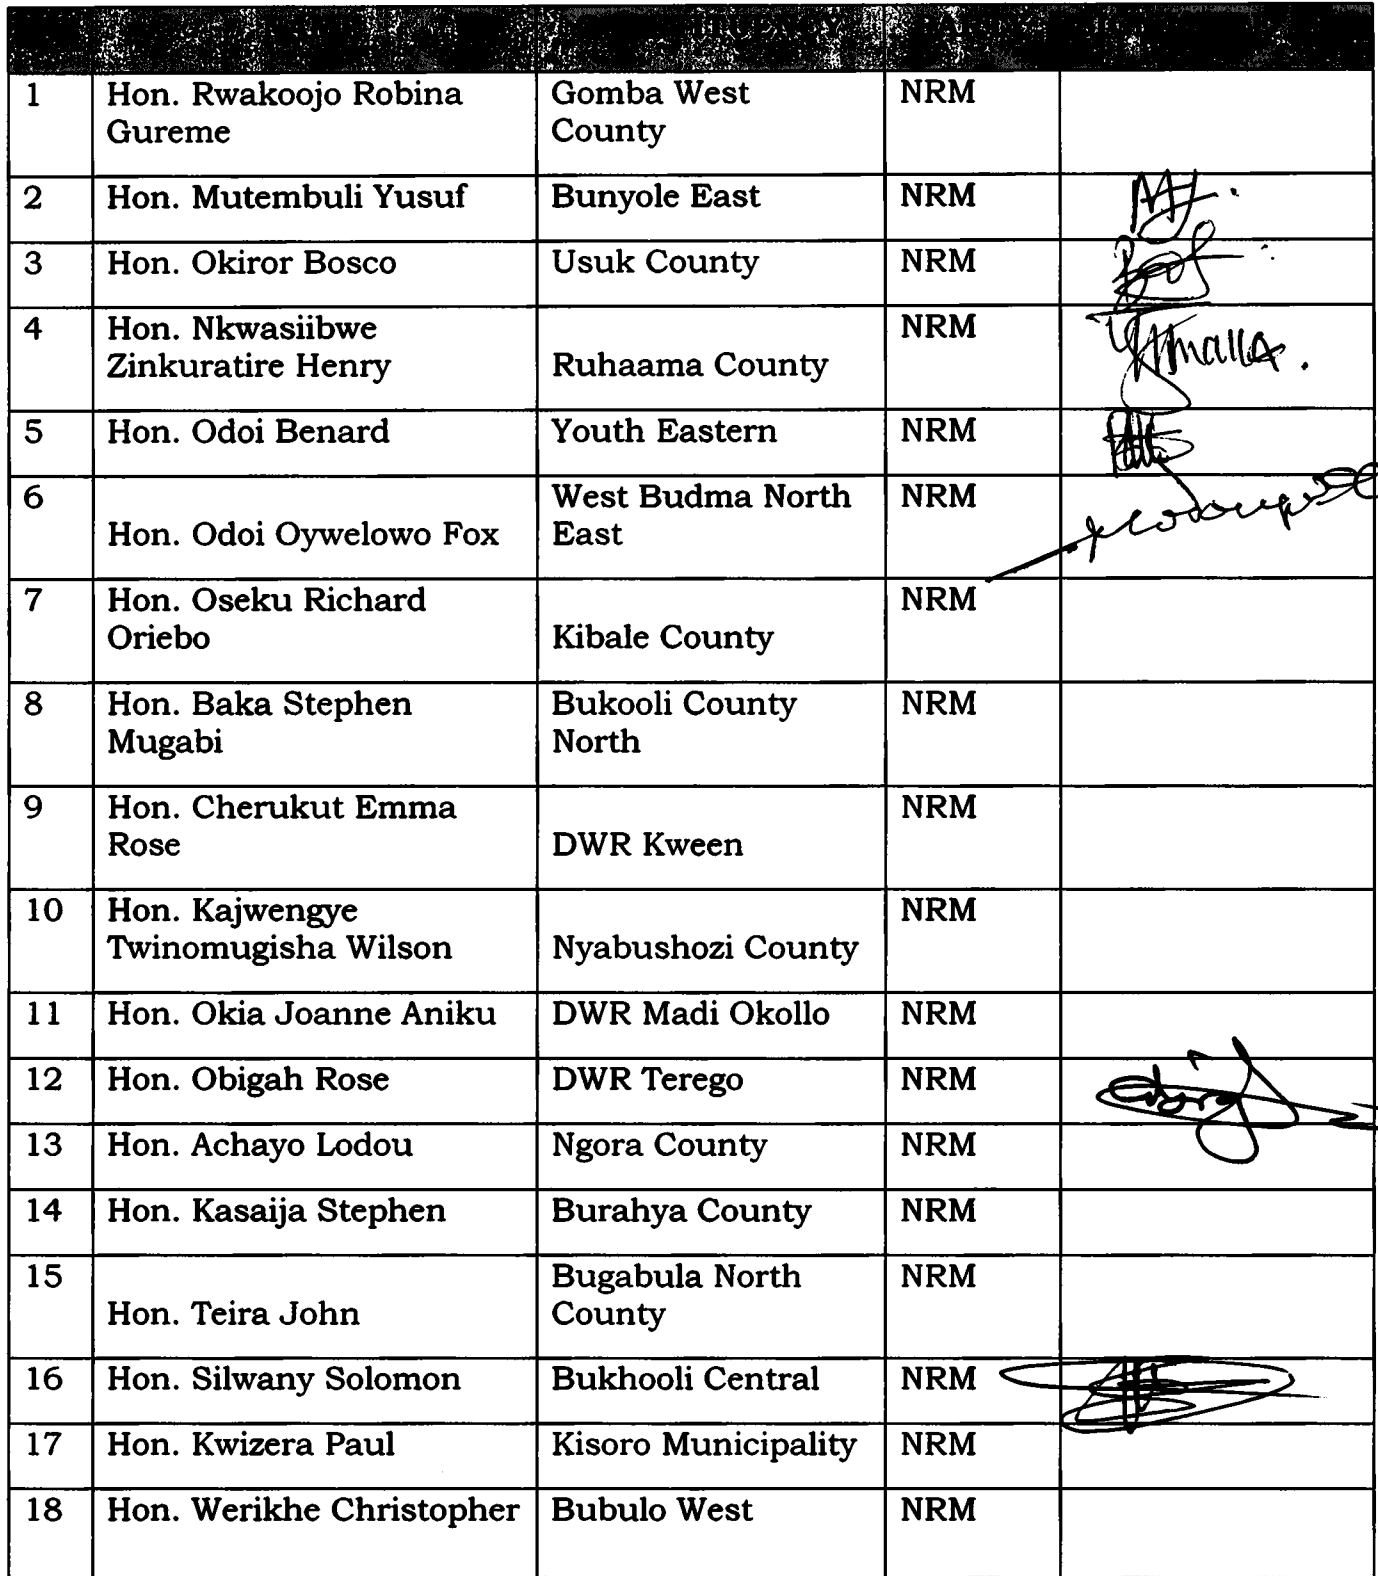 1 Hon. Rwakoojo Robina Gomba West NRM
Gureme County
2 Hon. Mutembuli Yusuf Bunyole East NRM
3 Hon. Okiror Bosco Usuk County NRM
4 Hon. Nkwasiibwe NRM
Zinkuratire Henry Ruhaama County
5 Hon. Odoi Benard Youth Eastern NRM
6 West Budma North NRM
Hon. Odoi Oywelowo Fox East
7 Hon. Oseku Richard NRM
Oriebo Kibale County
8 Hon. Baka Stephen Bukooli County NRM
Mugabi North
9 Hon. Cherukut Emma NRM
Rose DWR Kween
10 Hon. Kajwengye NRM
Twinomugisha Wilson Nyabushozi County
11 Hon. Okia Joanne Aniku DWR Madi Okollo NRM
12 Hon. Obigah Rose DWR Terego NRM
13 Hon. Achayo Lodou Ngora County NRM
14 Hon. Kasaija Stephen Burahya County NRM
15 Bugabula North NRM
Hon. Teira John County
16 Hon. Silwany Solomon Bukhooli Central NRM
17 Hon. Kwizera Paul Kisoro Municipality NRM
18 Hon. Werikhe Christopher Bubulo West NRM